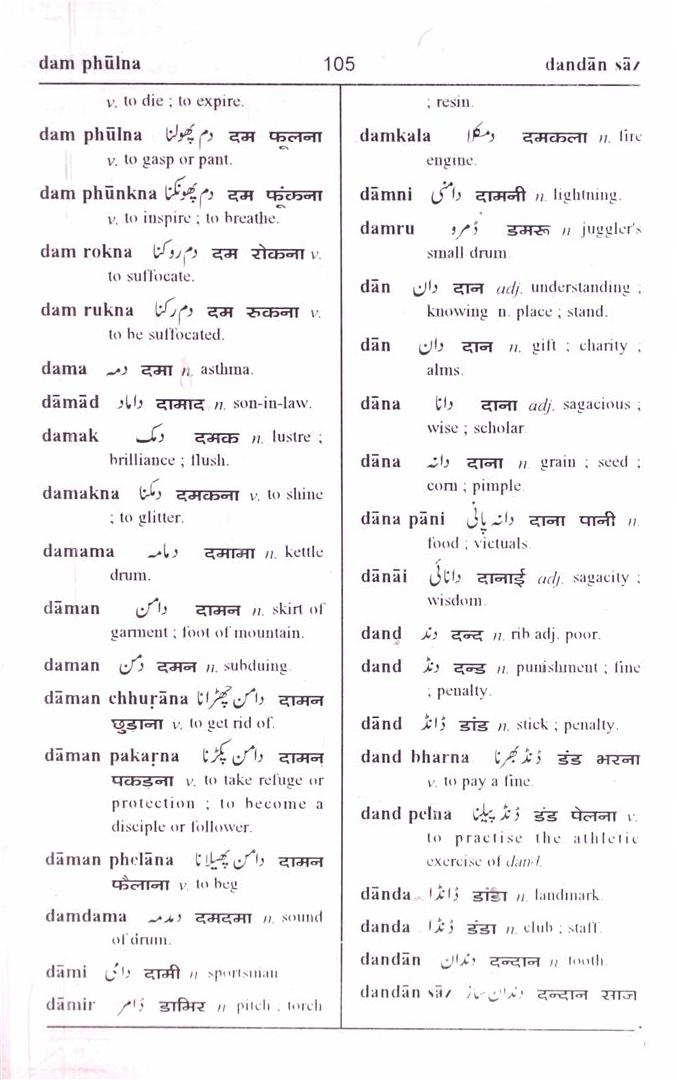 dam phūlna 105 dandān sāz
v. to die ; to expire.
dam phūlna دم پھولنا दम फूलना
v. to gasp or pant.
dam phūnkna دم پھونکنا दम फूंकना
v. to inspire ; to breathe.
dam rokna دم روکنا दम रोकना v.
to suffocate.
dam rukna دم رکنا दम रुकना v.
to be suffocated.
dama دمہ दमा n. asthma.
dāmād داماد दामाद n. son-in-law.
damak دمک दमक n. lustre ;
brilliance ; flush.
damakna دمکنا दमकना v. to shine
; to glitter.
damama دمامہ दमामा n. kettle
drum.
dāman دامن दामन n. skirt of
garment ; foot of mountain.
daman دمن दमन n. subduing.
dāman chhuṛāna دامن چھڑانا दामन
छुड़ाना v. to get rid of.
dāman pakaṛna دامن پکڑنا दामन
पकड़ना v. to take refuge or
protection ; to become a
disciple or follower.
dāman phelāna دامن پھیلانا दामन
फैलाना v. to beg
damdama دمدمہ दमदमा n. sound
of drum.
dāmi دامی दामी n sportsman
dāmir ڈامر डामिर n pitch , torch
; resin.
damkala دمکلا दमकला n. fire
engine.
dāmni دامنی दामनी n. lightning.
damru ڈمرو डमरू n juggler's
small drum
dān دان दान adj. understanding ;
knowing n. place ; stand.
dān دان दान n. gift ; charity ;
alms.
dāna دانا दाना adj. sagacious ;
wise ; scholar.
dāna دانہ दाना n grain ; seed ;
corn ; pimple.
dāna pāni دانہ پانی दाना पानी n.
food ; victuals.
dānāi دانائی दानाई adj. sagacity ;
wisdom.
dand دند दन्द n. rib adj. poor.
dand دنڈ दन्ड n. punishment ; fine
; penalty.
dānd ڈانڈ डांड n. stick ; penalty.
dand bharna ڈنڈ بھرنا डंड भरना
v. to pay a fine.
dand pelna ڈنڈ پیلنا डंड पेलना v.
to practise the athletic
exercise of dand.
dānda ڈانڈا डांडा n. landmark.
danda ڈنڈا डंडा n. club ; staff.
dandān دندان दन्दान n. tooth.
dandān sāz دندان ساز दन्दान साज